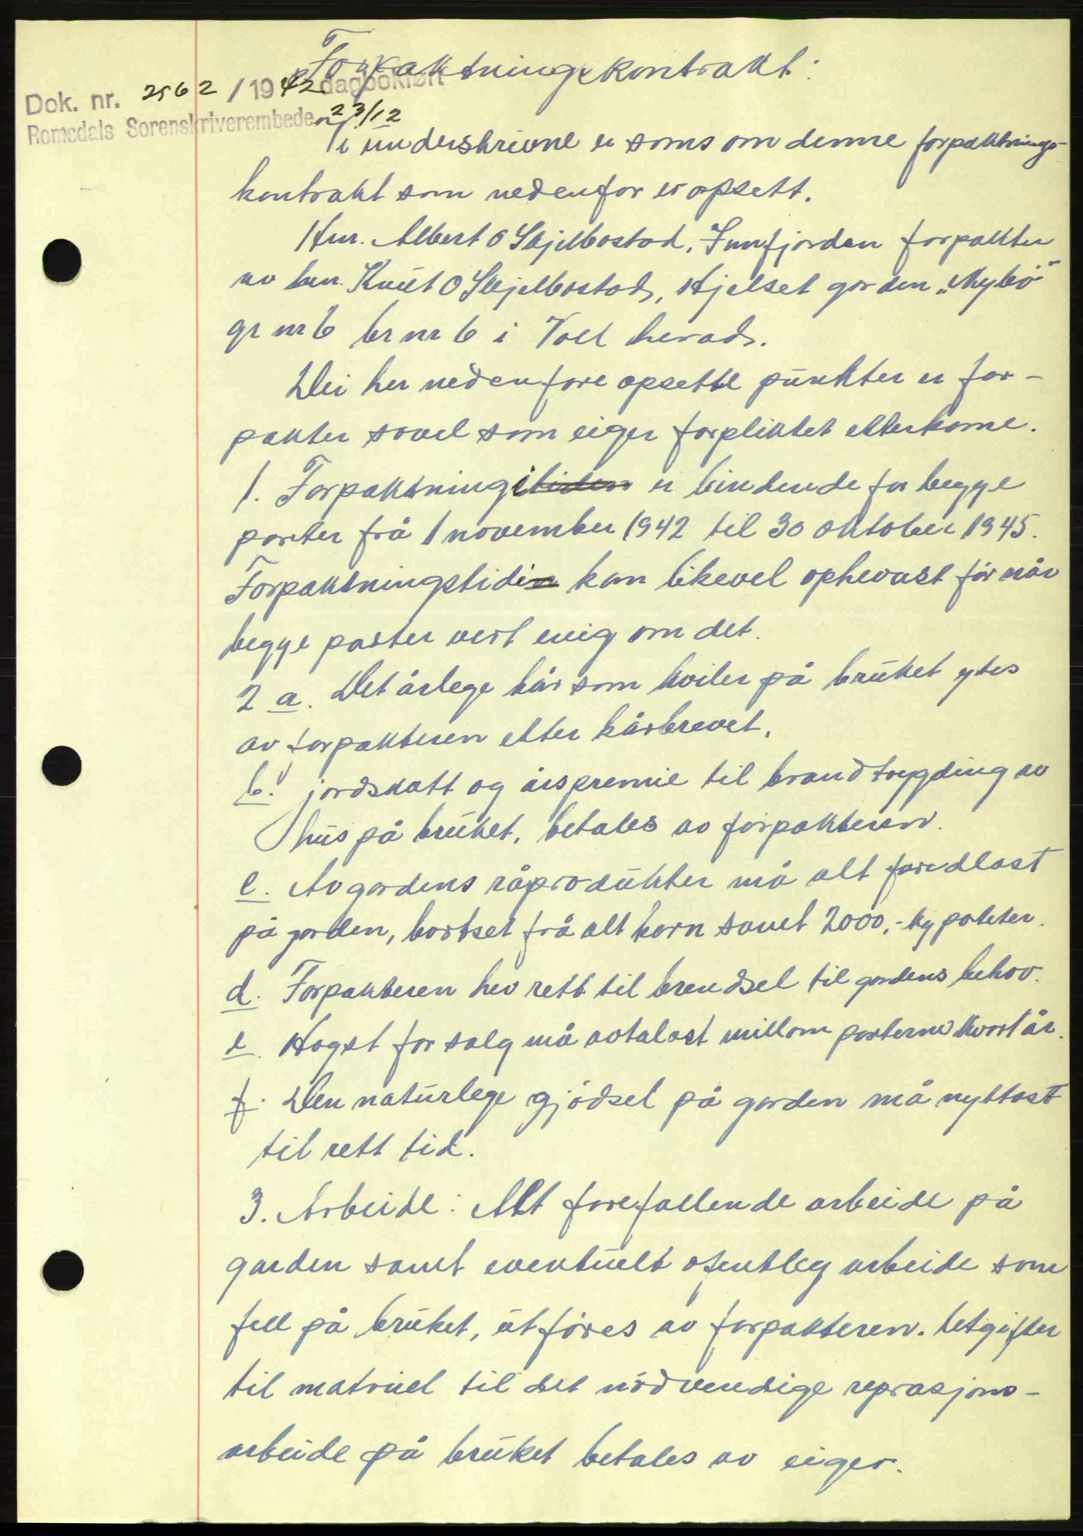 Forpaktningskontrakt:
Dok. nr. 2562 / 1942 dagbokført
Romsdals Sorenskriverembede 23/12
Vi underskrivne er soms om denne forpaktnings-
kontrakt som nedenfor er opsett.
Hrr. Albert O Skjelbostad, Innfjorden forpakter
av hrr. Knut O Skjelbostad, Hjelset garden „Nybö"
gr nr 6 br nr 6 i Voll herad.
Dei her nedenfore opsette punkter er for-
pakter sovel som eiger forpliktet etterkome.
1. Forpaktningstiden er bindende for begge
parter frå 1 november 1942 til 30 oktober 1945.
Forpaktningstidin kan likevel ophevast för når
begge parter vert enig om det.
2 a. Det årlege kår som kviler på brüket ytes
av forpakteren etter kårbrevet.
b. jordskatt og årspremie til brandtrygding av
hüs på brüket, betales av forpakteren.
c. Av gardens råprodükter må alt foredlast
på garden, bortset frå alt korn samt 2000,- kg poteter.
d. Forpakteren hev rett til brendsel til gardens behov.
e. Hogst for salg må avtalast millom parterne kvart år.
f. Den natürlege gjödsel på garden må nyttast
til rett tid.
3. Arbeide: Alt forefallende arbeide på
garden samt eventüelt ofentleg arbeide som
fell på brüket, ütföres av forpakteren. Utgifter
til matriel til det nödvendige reprasjons-
arbeide på brüket betales av eiger.